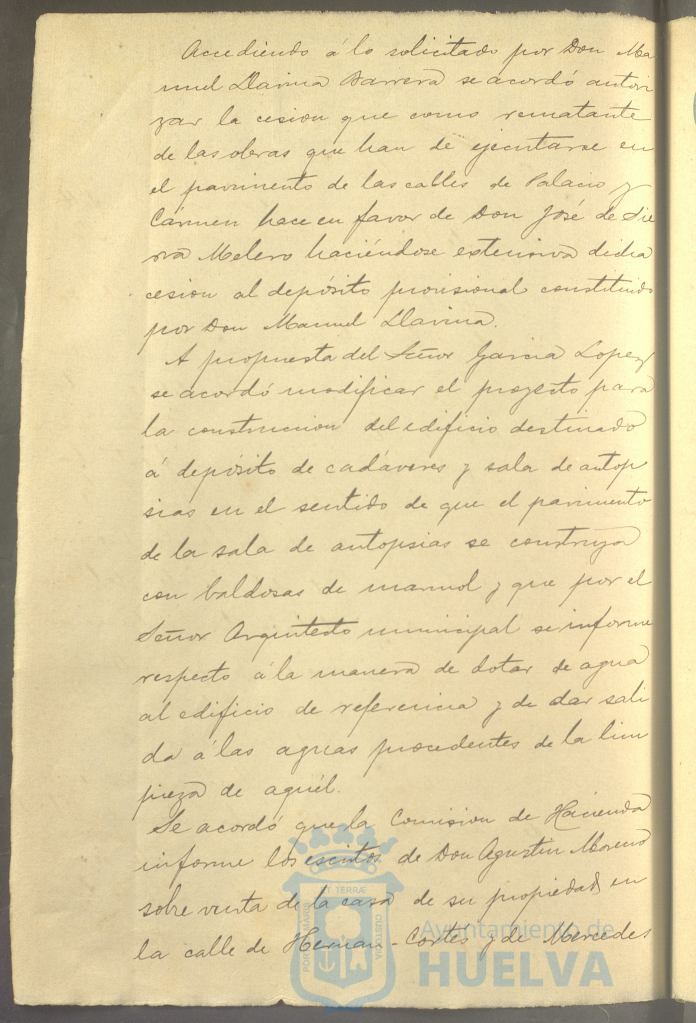 Accediendo á lo solicitado por Don Ma
nuel Llarina Barrera se acordó autori
zar la cesion que como rematante
de las obras que han de ejecutarse en
el pavimento de las calles de Palacio y
Cármen hace en favor de Don José de Sie
rra Melero haciéndose extensiva dicha
cesion al depósito provisional constituido
por Don Manuel Llarina.
A propuesta del Señor Garcia Lopez
se acordó modificar el proyecto para
la construccion del edificio destinado
á depósito de cadáveres y sala de autop
sias en el sentido de que el pavimento
de la sala de autopsias se construya
con baldosas de marmol y que por el
Señor Arquitecto municipal se informe
respecto á la manera de dotar de agua
al edificio de referencia y de dar sali
da á las aguas procedentes de la lim
pieza de aquél.
Se acordó que la Comision de Hacienda
informe los escritos de Don Agustin Moreno
sobre venta de la casa de su propiedad en
la calle de Hernan-Cortés y de Mercedes
PORTUS MARIS ET TERRÆ CUSTODIA
Ayuntamiento de
HUELVA